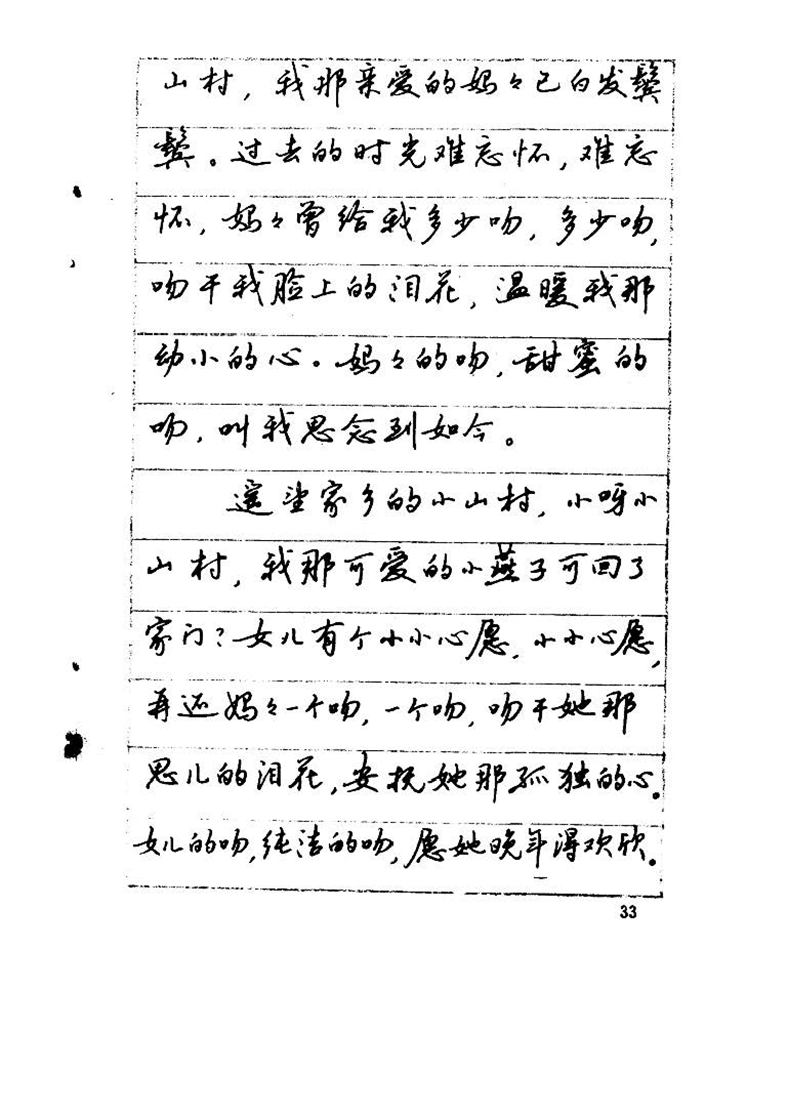 山村，我那亲爱的妈々已白发鬓
鬓。过去的时光难忘怀，难忘
怀，妈々曾给我多少吻，多少吻，
吻干我脸上的泪花，温暖我那
幼小的心。妈々的吻，甜蜜的
吻，叫我思念到如今。
遥望家乡的小山村，小呀小
山村，我那可爱的小燕子可回了
家门？女儿有个小小心愿，小小心愿，
再还妈々一个吻，一个吻，吻干她那
思儿的泪花，安抚她那孤独的心。
女儿的吻，纯洁的吻，愿她晚年得欢欣。
33